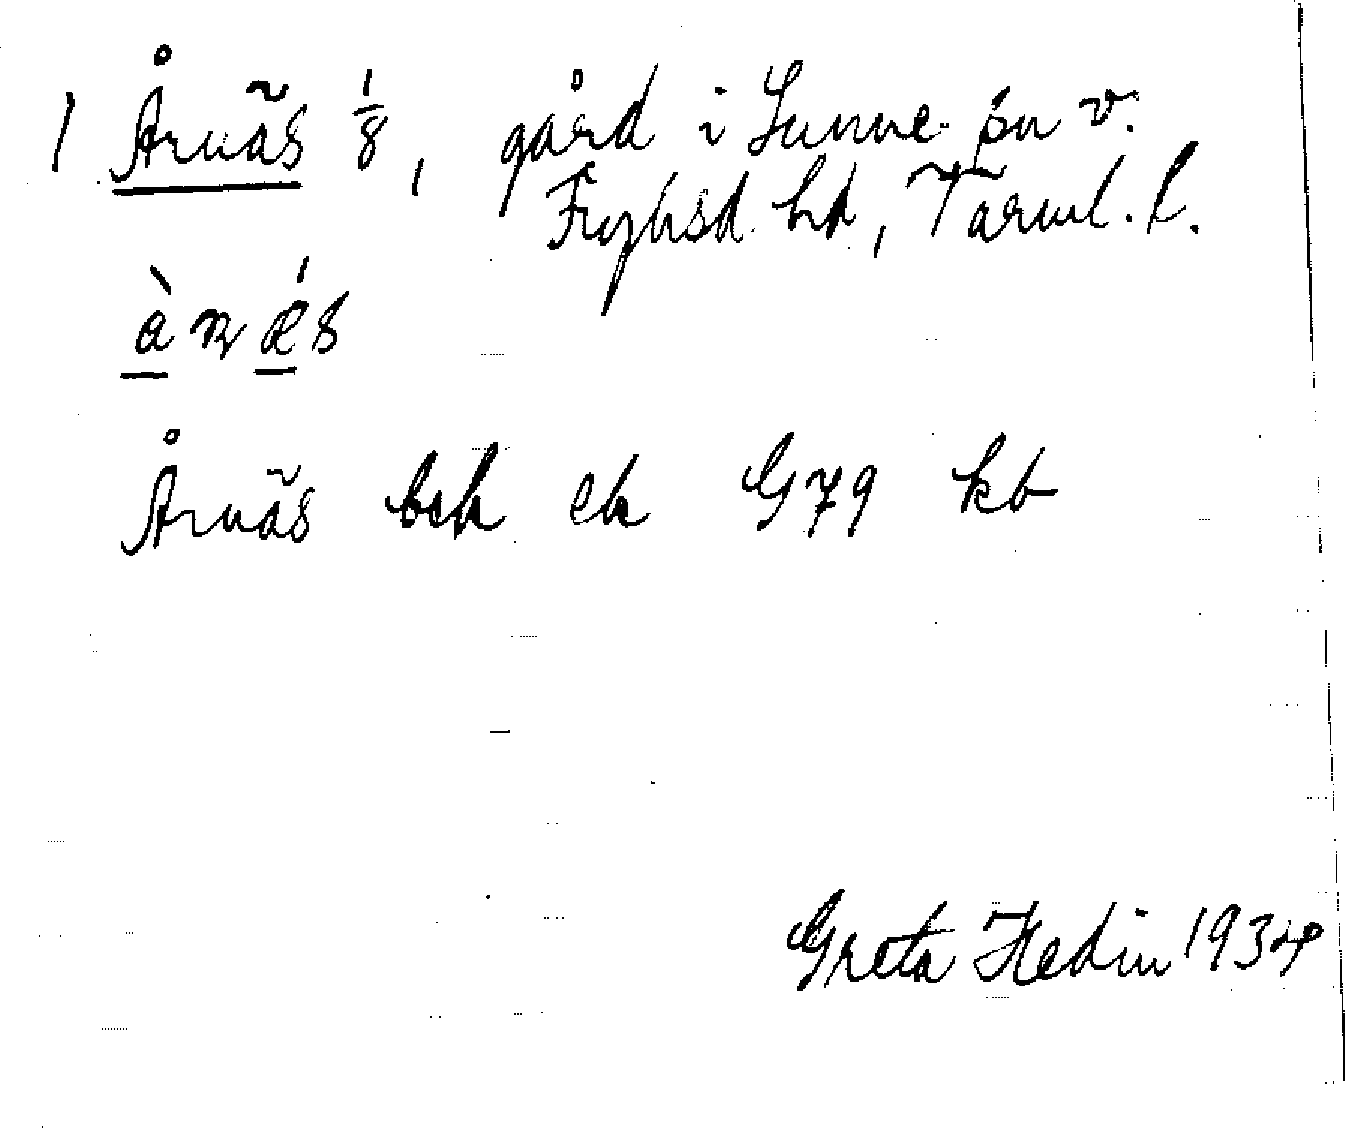 1 Årnäs 1/8, gård i Sunne sn v.
Fryksd. hd, Värml. l.
Årnäs bek ek G79 kb
Greta Hedin 1934